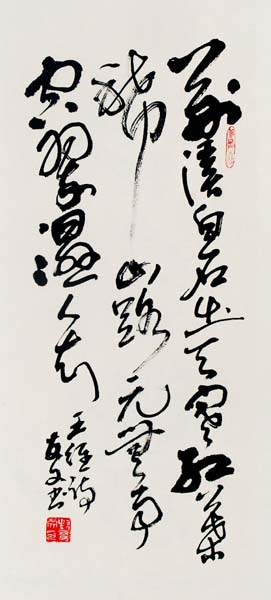 荆溪白石出天寒紅葉
稀山路元無雨
空翠濕人衣
王維詩
文书